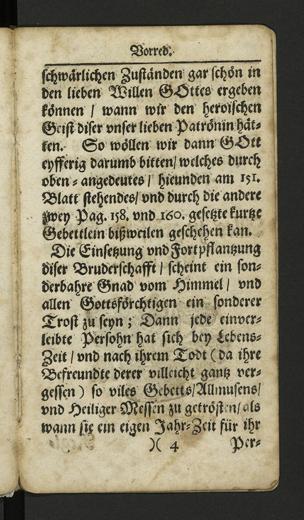 Vorred.
schwärlichen Zuständen gar schön in
den lieben Willen GOttes ergeben
können / wann wir den heroischen
Geist diser vnser lieben Patrönin hät-
ten. So wöllen wir dann GOtt
eyfferig darumb bitten / welches durch
oben-angedeutes / hieunden am 151.
Blatt stehendes / vnd durch die andere
zwey Pag. 158. vnd 160. gesetzte kurtze
Gebettlein bißweilen geschehen kan.
Die Einsetzung vnd Fortpflantzung
diser Bruderschafft / scheint ein son-
derbahre Gnad vom Himmel / vnd
allen Gottsförchtigen ein sonderer
Trost zu seyn ; Dann jede einver-
leibte Persohn hat sich bey Lebens-
Zeit / vnd nach ihrem Todt ( da ihre
Befreundte derer villeicht gantz ver-
gessen ) so viles Gebetts / Allmusens /
vnd Heiliger Messen zu getrösten / als
wann sie ein eigen Jahr-Zeit für ihr
)( 4 Per-